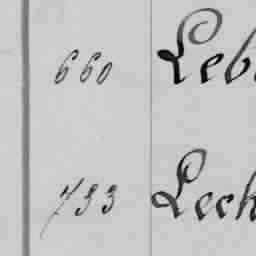 660 Leb
733 Lech